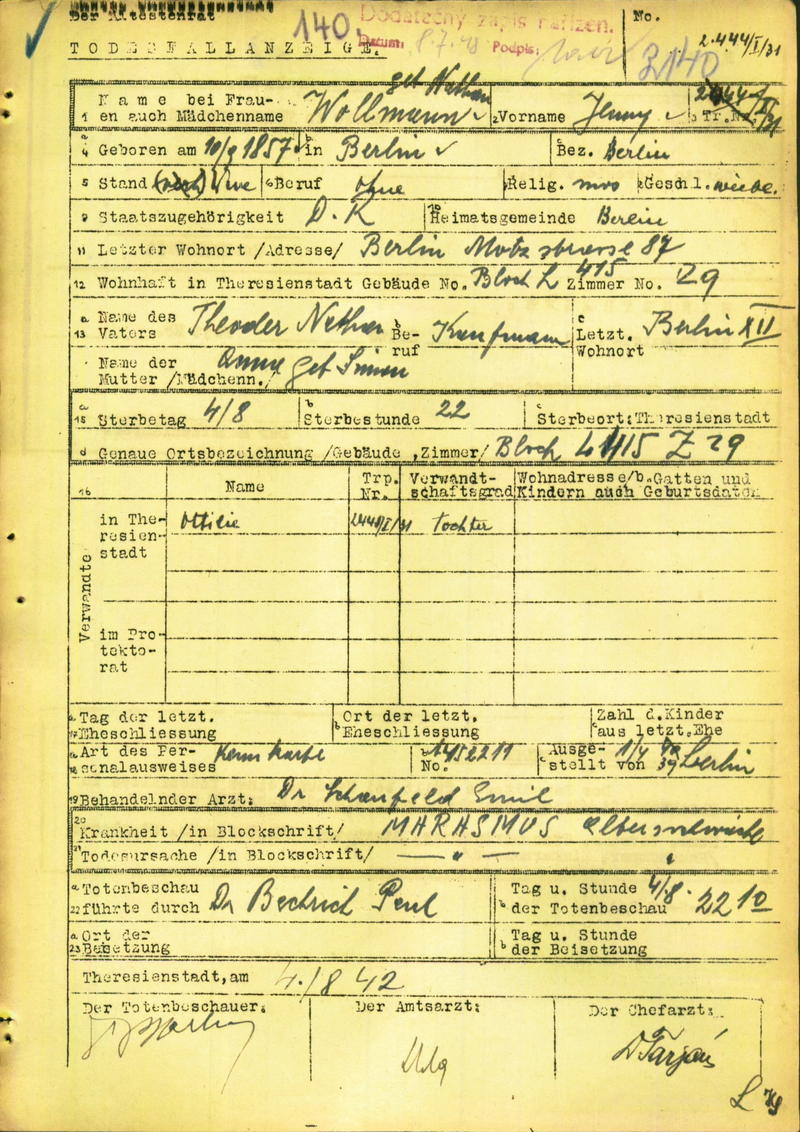 Der Ältestenrat
140. Dodatečný zápis nařízen.
Datum: 8.7.48 Podpis:
No. 2.444/I/31
3140
TODESFALLANZEIGE.
get Nathan
1 Name bei Frauen auch Mädchenname Wollmann 2 Vorname Jenny 3 Tr.Nr.
4 Geboren am 10/9 1857 b in Berlin c Bez. Berlin
5 Stand Wwe 6 Beruf ohne 7 Relig. mos 8 Geschl. weibl.
9 Staatszugehörigkeit D.R 10 Heimatsgemeinde Berlin
11 Letzter Wohnort /Adresse/ Berlin Motzstrasse 87
12 Wohnhaft in Theresienstadt Gebäude No. Block L 415 Zimmer No. 29
a 13 Name des Vaters Theodor Nathan b Beruf Kaufmann c Letzt. Wohnort Berlin XII
Name der Mutter /Mädchenn./ Anna geb Simon
a 15 Sterbetag 4/8 b Sterbestunde 22 c Sterbeort: Theresienstadt
d Genaue Ortsbezeichnung /Gebäude, Zimmer/ Block L 415 Z 29
16 Name Trp. Nr. Verwandtschaftsgrad Wohnadresse/b.Gatten und Kindern auch Geburtsdaten
Verwandte
in Theresienstadt Ottilie I/31 Tochter
im Protektorat
a 17 Tag der letzt. Eheschliessung b Ort der letzt. Eheschliessung c Zahl d.Kinder aus letzt.Ehe
a 18 Art des Personalausweises Kennkarte b No. A452211 c Ausgestellt von Berlin
19 Behandelnder Arzt: Dr Schönfeld Emil
20 Krankheit /in Blockschrift/ MARASMUS Altersschwäche
21 Todesursache /in Blockschrift/ — " —
a 22 Totenbeschau führte durch Dr Paul b Tag u. Stunde der Totenbeschau 4/8. 22 10
a 23 Ort der Beisetzung b Tag u. Stunde der Beisetzung
Theresienstadt, am 4./8 42
Der Totenbeschauer: Der Amtsarzt: Der Chefarzt: